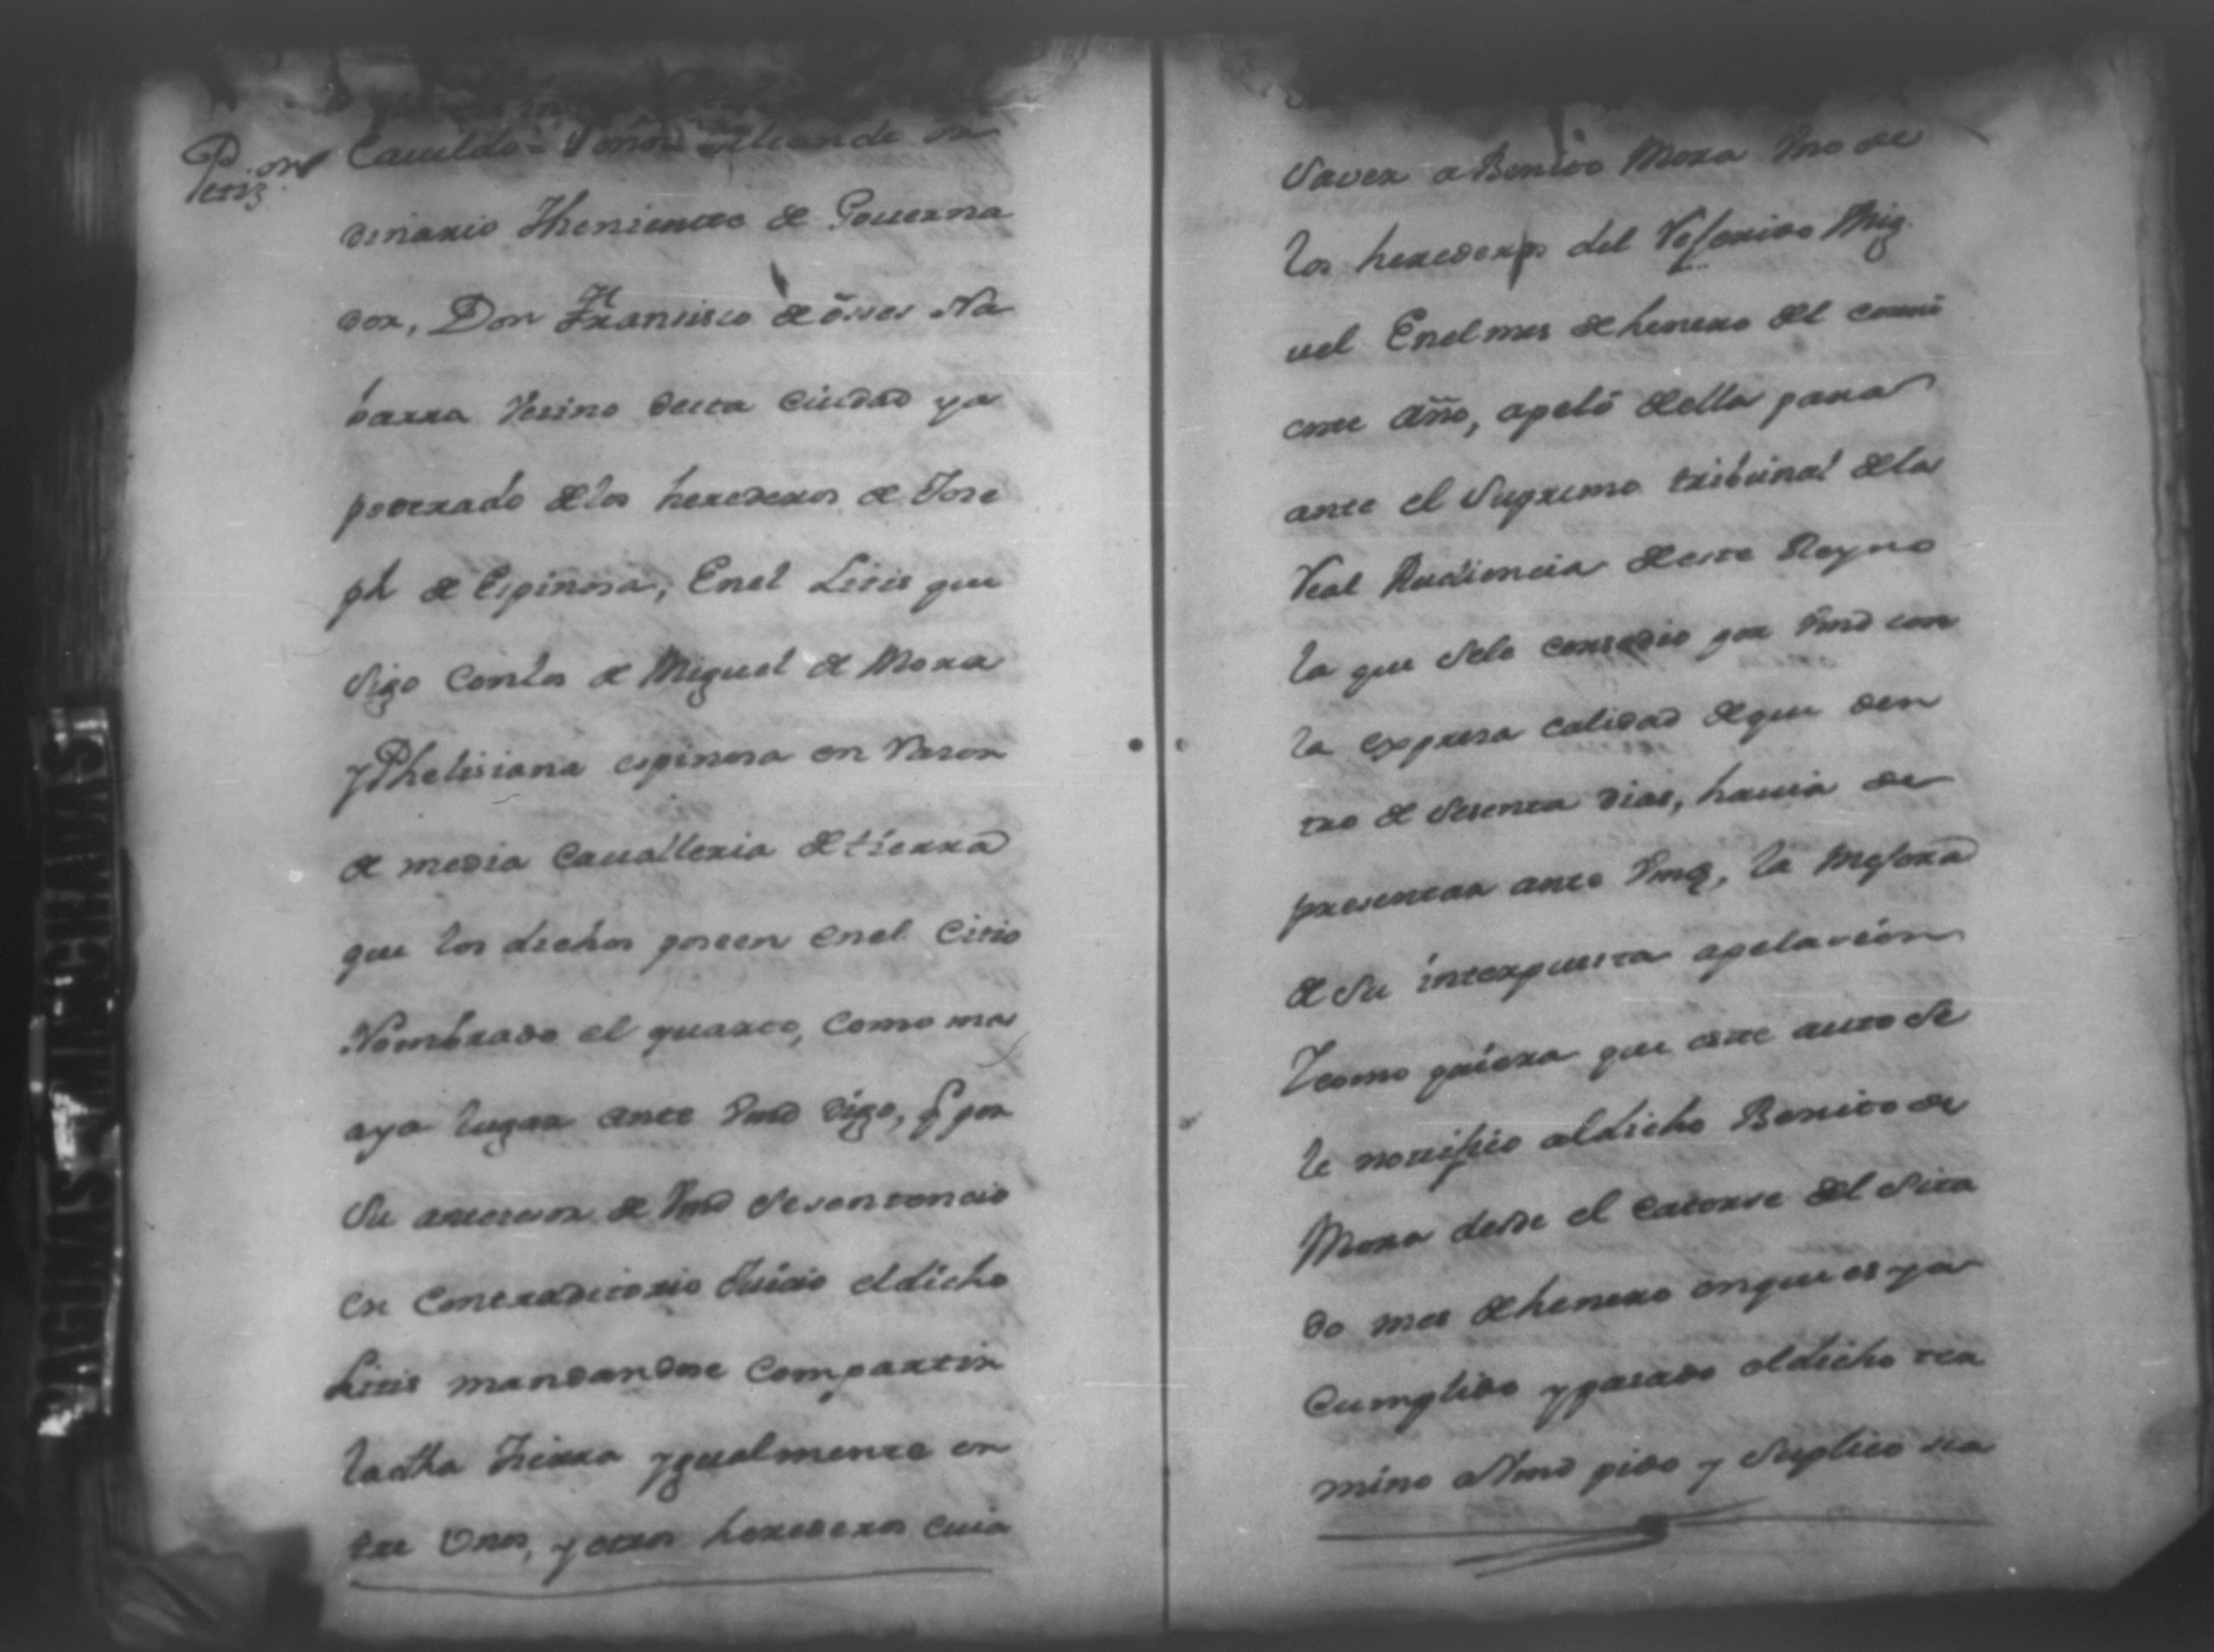 Petiz.on
Cauildo = Señor Alcande or
dinario Theniente de Gouerna
dor, Don Francisco de óses Na
barra Vesino desta Ciudad y a
poderado de los herederos de Jose
ph de Espinosa, En el Litis que
sigo Con los de Miguel de Mora
y Phelisiana espinosa en Rason
de media Cauallería de tierra
que los dichos poseen en el Citio
Nombrado el quarto, Como mas
aya lugar ante Vmd digo, q por
su antecesor de Vmd se sentencio
en Contraditorio Juicio el dicho
Litis mandandose Compartir
la dha tierra ygualmente en
tre Unos, y otros herederos cuia
Saver a Benito Mora Uno de
los herederos del Referido Mig.
uel En el mes de henero del corrie
ente año, apeló della para
ante el Supremo tribunal de la
Real Audiencia de este Reyno
la que se le consedio por Vmd con
la expresa calidad de que den
tro de sesenta dias, hauia de
presentar ante Vmd, la Mejora
de su interpuesta apelacion
Y como quiera que este auto se
le notifico al dicho Benito de
Mora desde el Catorse del Sita
do mes de henero en que es ya
Cumplido y pasado el dicho ter
mino a Vmd pido y Suplico sea
PAGINAS MANCHADAS